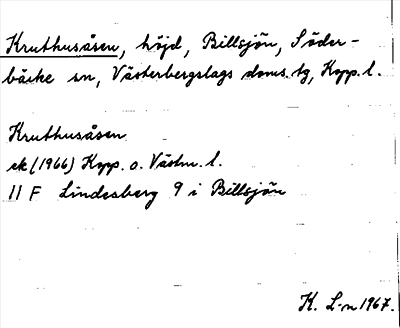 Kruthusåsen, höjd, Billsjön, Söder-
bärke sn, Västerbergslags doms. tg, Kopp. l.
Kruthusåsen
ek (1966) Kopp. o. Västm. l.
11 F Lindesberg 9 i Billsjön
K. L-n 1967.